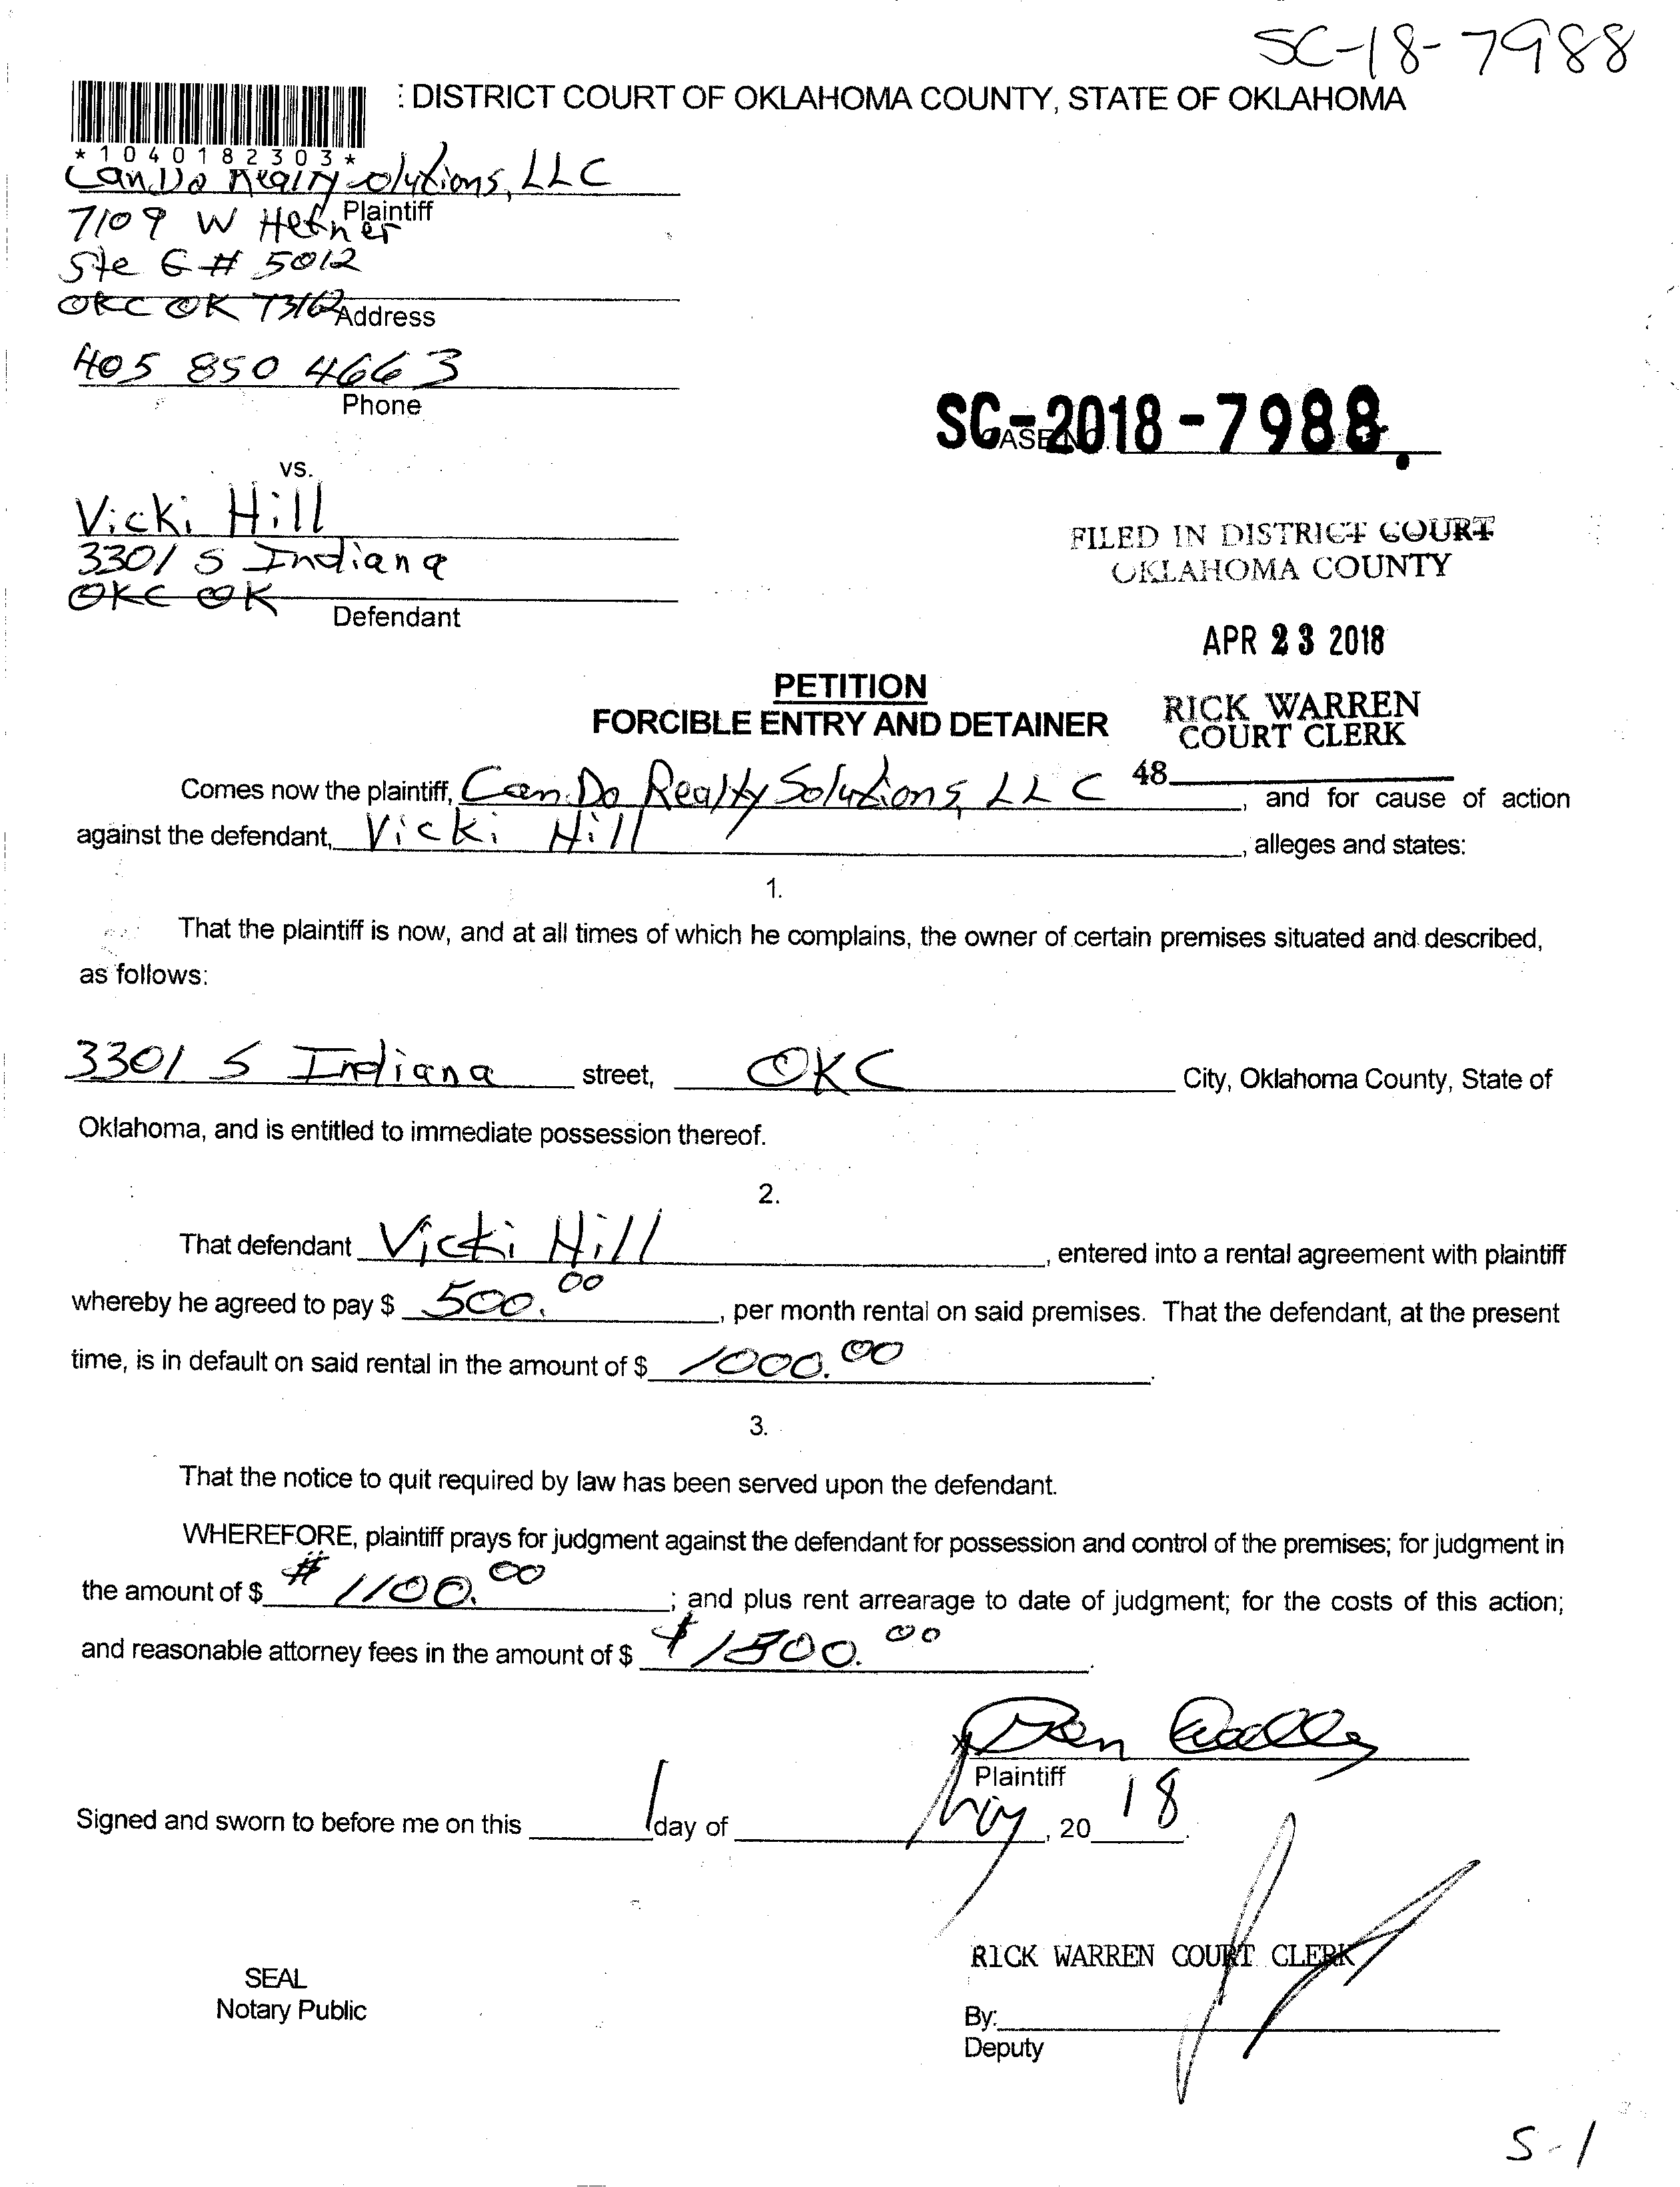 SC-18-7988
: DISTRICT COURT OF OKLAHOMA COUNTY, STATE OF OKLAHOMA
*1040182303*
CanDo Realty Solutions, LLC
Plaintiff
7109 W Hefner
Ste G # 5012
OKC OK 73162
Address
405 850 4663
Phone
SC-2018-7988.
CASE NO.
vs.
Vicki Hill
3301 S Indiana
OKC OK
Defendant
FILED IN DISTRICT COURT
OKLAHOMA COUNTY
APR 23 2018
RICK WARREN
COURT CLERK
48
PETITION
FORCIBLE ENTRY AND DETAINER
Comes now the plaintiff, CanDo Realty Solutions, LLC, and for cause of action
against the defendant, Vicki Hill, alleges and states:
1.
That the plaintiff is now, and at all times of which he complains, the owner of certain premises situated and described,
as follows:
3301 S Indiana street, OKC City, Oklahoma County, State of
Oklahoma, and is entitled to immediate possession thereof.
2.
That defendant Vicki Hill, entered into a rental agreement with plaintiff
whereby he agreed to pay $ 500.00, per month rental on said premises. That the defendant, at the present
time, is in default on said rental in the amount of $ 1000.00.
3.
That the notice to quit required by law has been served upon the defendant.
WHEREFORE, plaintiff prays for judgment against the defendant for possession and control of the premises; for judgment in
the amount of $ # 1100.00; and plus rent arrearage to date of judgment; for the costs of this action;
and reasonable attorney fees in the amount of $ $ .00.
Plaintiff
Signed and sworn to before me on this 1 day of , 20 18.
RICK WARREN COURT CLERK
SEAL
Notary Public
By:
Deputy
S-1